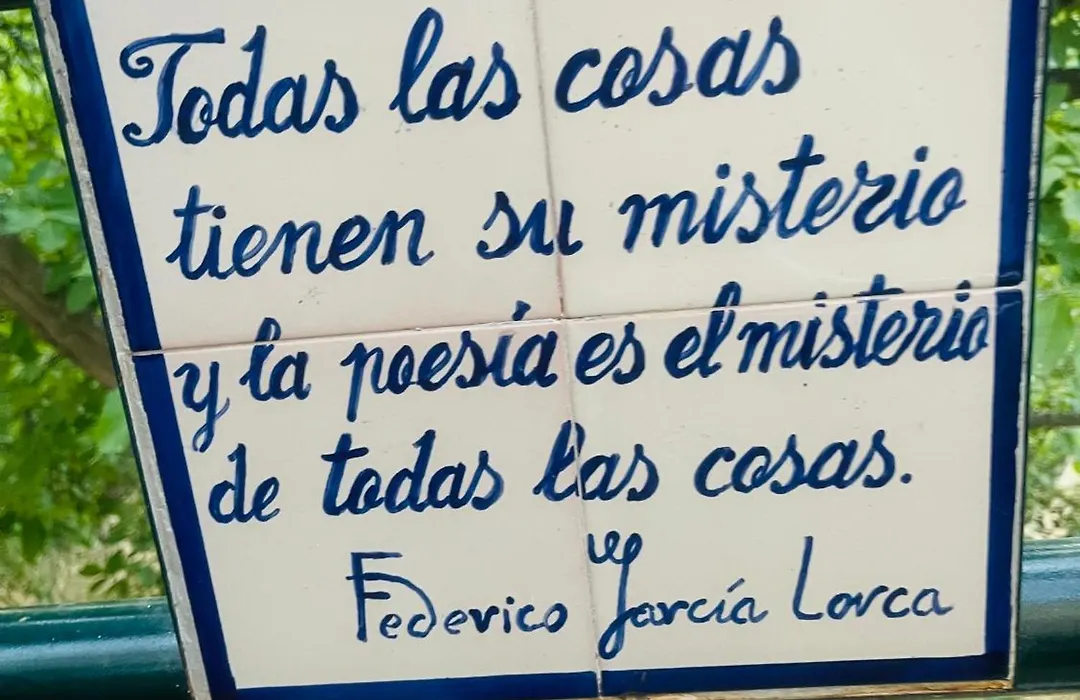 Todas las cosas
tienen su misterio
y la poesía es el misterio
de todas las cosas.
Federico García Lorca